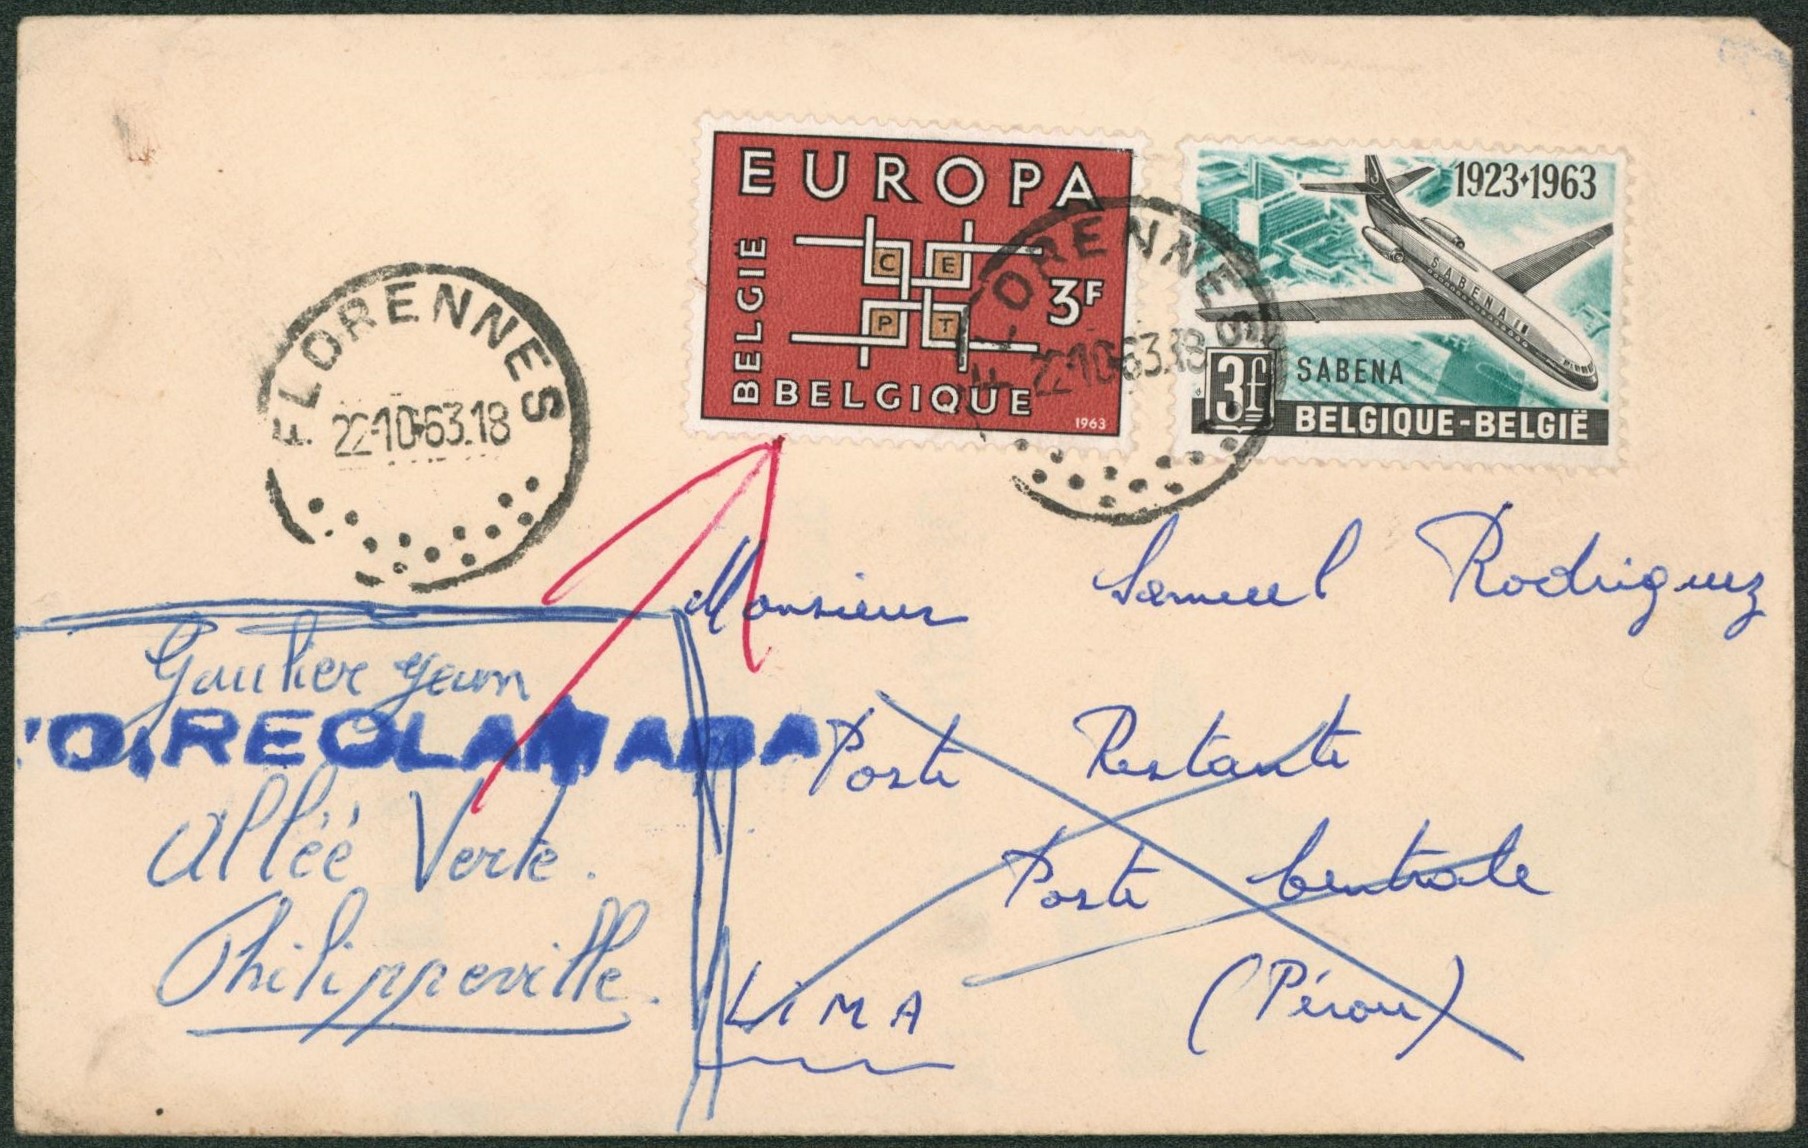 EUROPA
C E
P T
3F
BELGIË
BELGIQUE
1963
1923•1963
SABENA
SABENA
3f
BELGIQUE-BELGIË
FLORENNES
22-10-63.18
FLORENNES
22-10-63.18
Monsieur Samuel Rodriguez
Poste Restante
Poste Centrale
LIMA (Pérou)
Gautier Jean
O RECLAMADA
Allée Verte.
Philippeville.